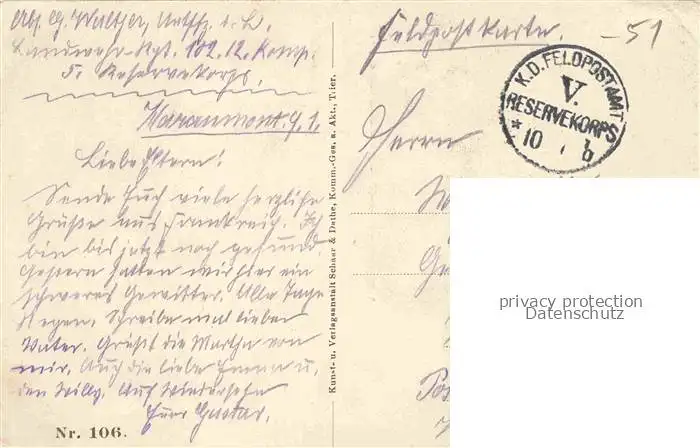 Abs. G. Walter, Untffz. d. L.
Landwehr-Rgt. 102. 12. Komp.
5. Reservekorps.
9. 1.
Liebe Eltern!
Sende Euch viele herzliche
Grüße aus Frankreich. Ich
bin bis jetzt noch gesund.
Gestern hatten wir hier ein
schweres Gewitter. Alle Tage
Regen. Schreibe mal lieben
Vater. Grüßt die Martha von
mir. Auch die liebe Emma u.
den Willy. Auf Wiedersehn
Euer Gustav.
Nr. 106.
Kunst- u. Verlagsanstalt Schaar & Dathe, Komm.-Ges. a. Akt., Trier.
Feldpostkarte.
-51
K.D. FELDPOSTAMT
V.
RESERVEKORPS
* 10 b
Herrn
privacy protection
Datenschutz